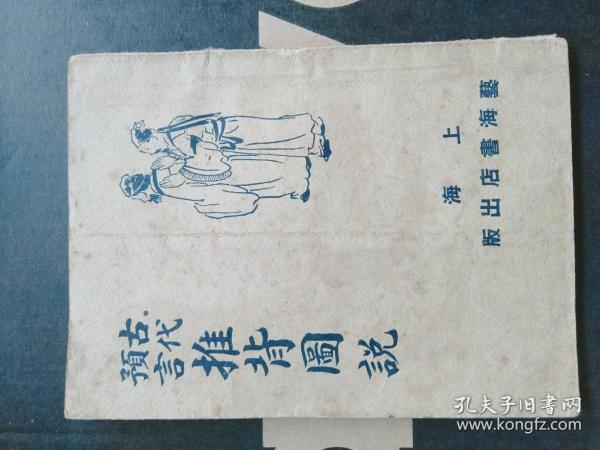 古代
預言
推背圖說
上海
藝海書店出版
孔夫子旧書网
www.kongfz.com